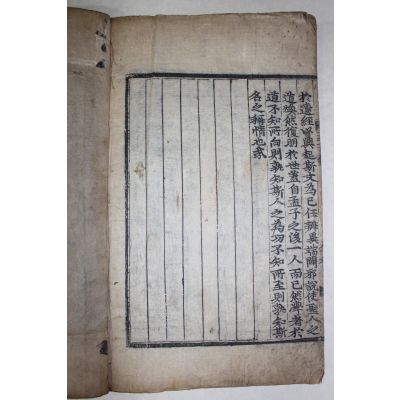 於遺經以興起斯文為己任辨異端闢邪說使聖人之
道煥然復明於世蓋自孟子之後一人而已然學者於
道不知所向則孰知斯人之為功不知所至則孰知斯
名之稱情也哉